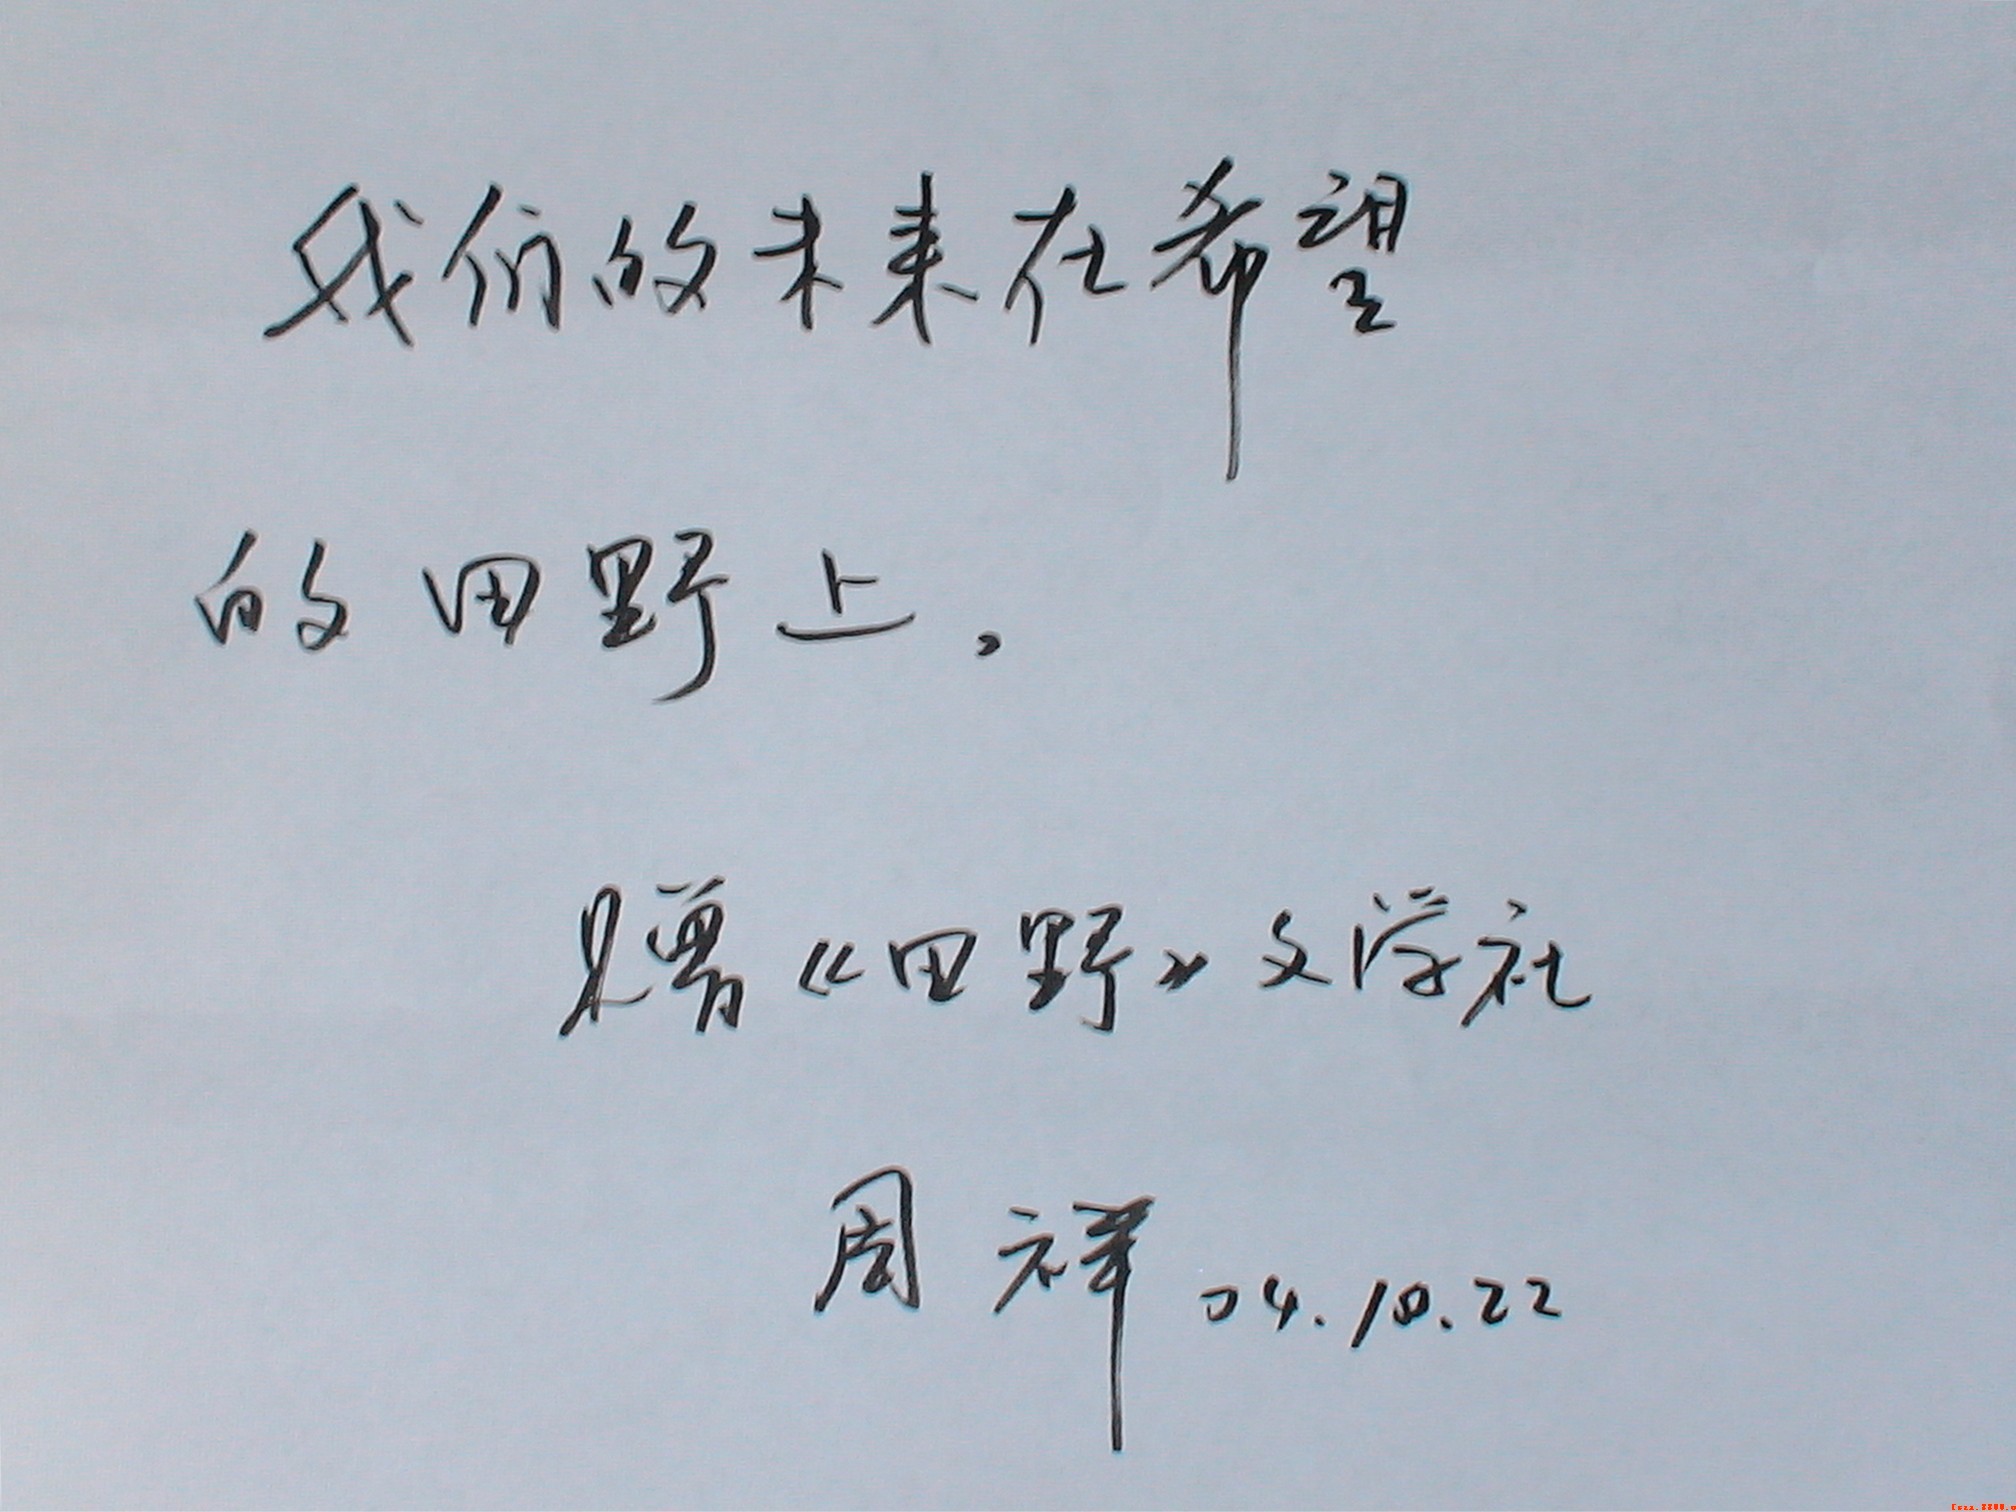 我们的未来在希望
的田野上。
赠《田野》文学社
周祥 04.10.22